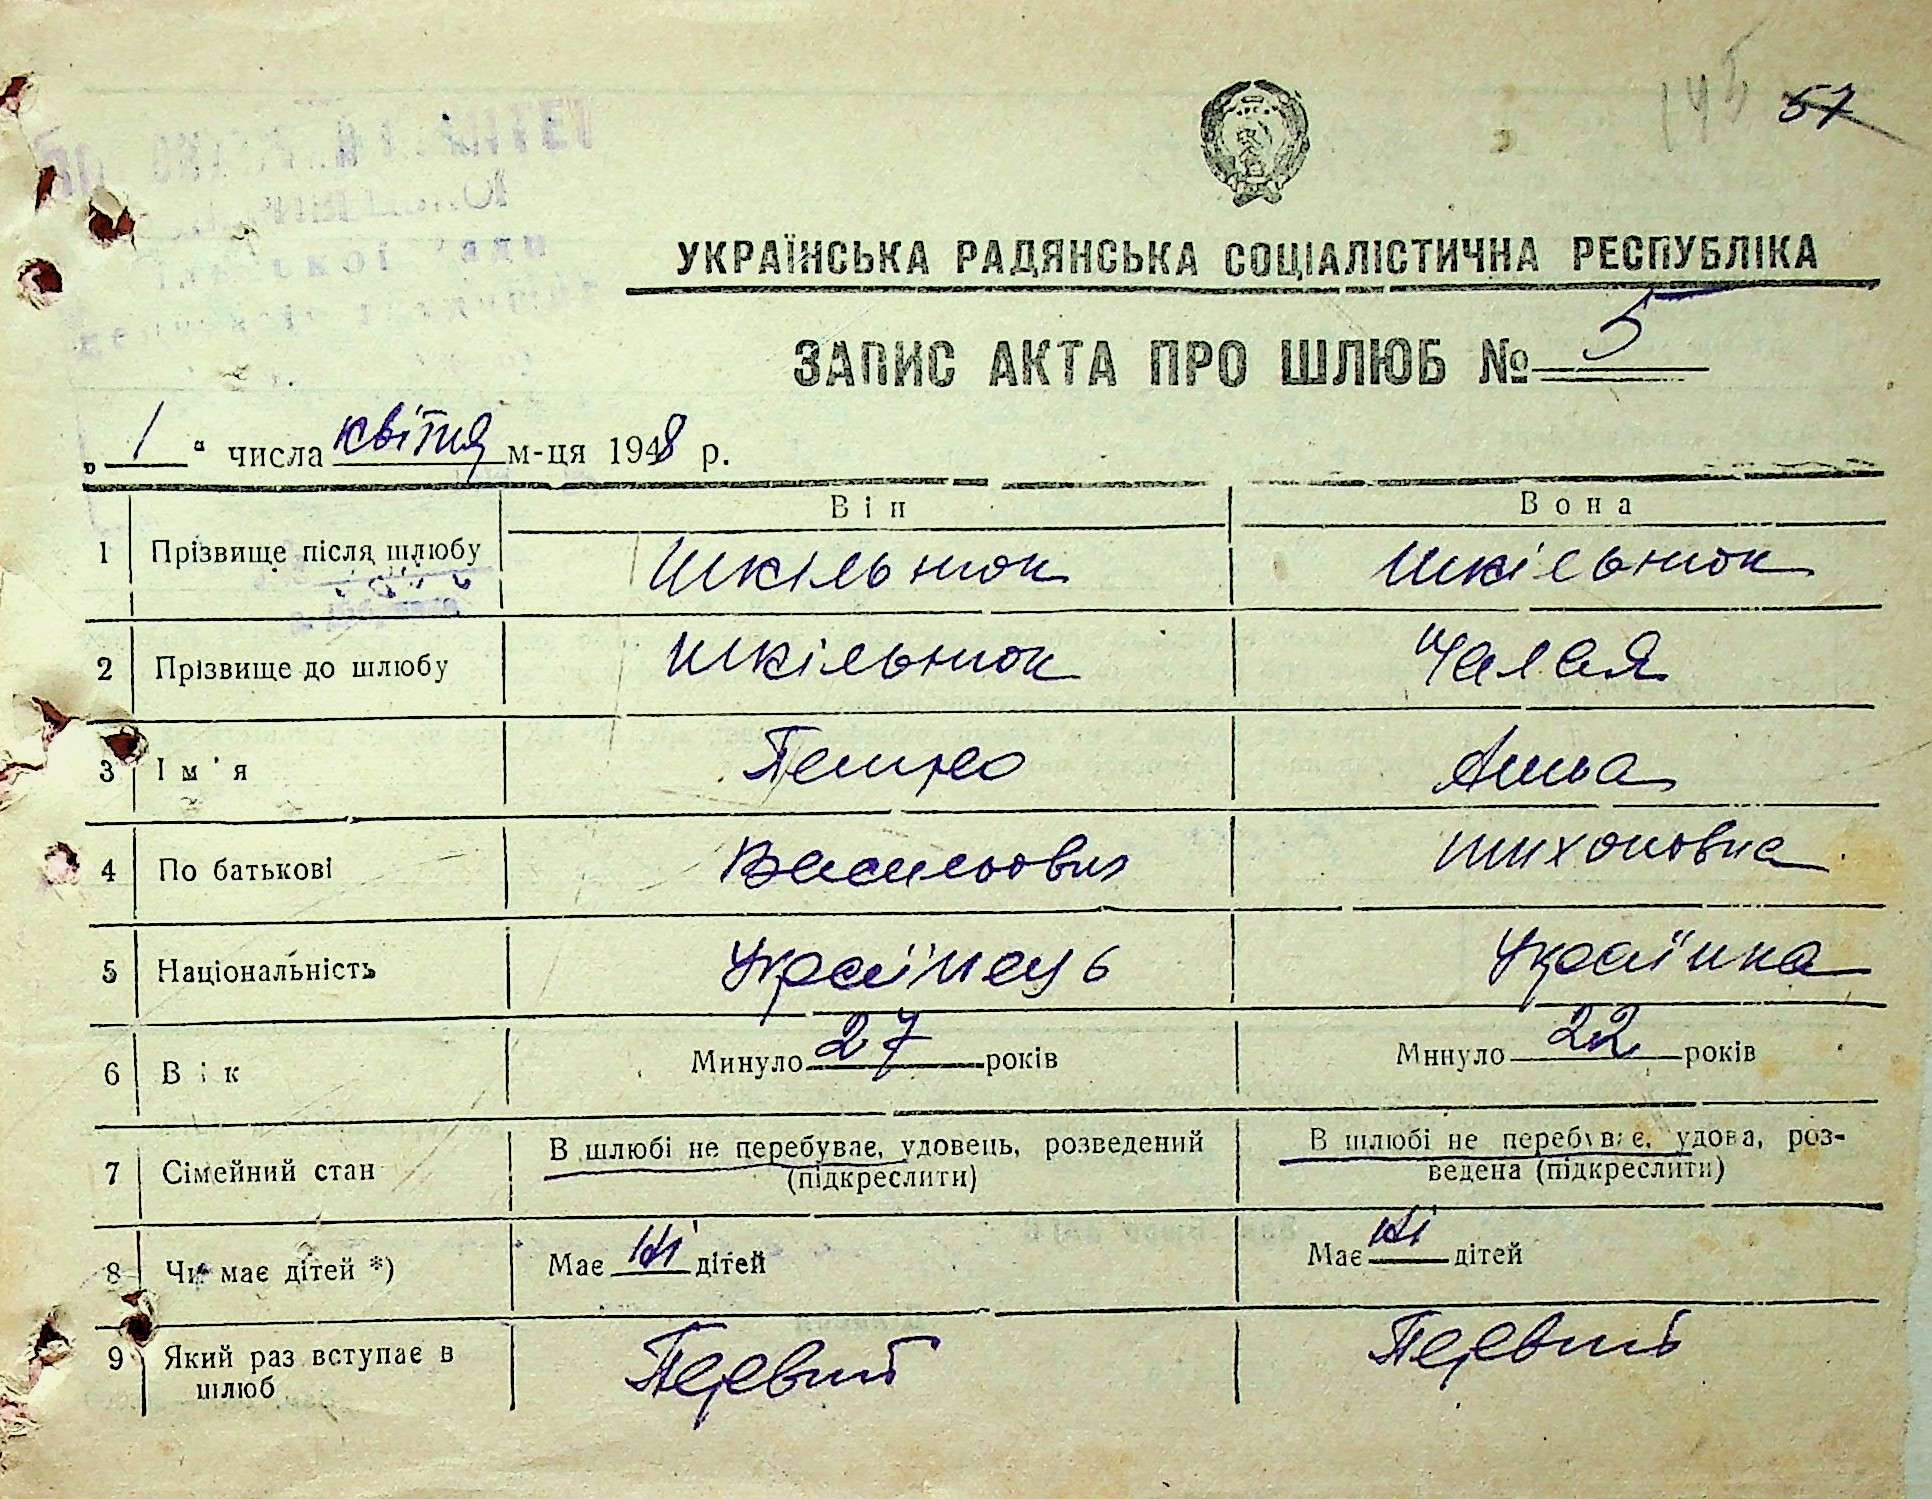 145 57
УКРАЇНСЬКА РАДЯНСЬКА СОЦІАЛІСТИЧНА РЕСПУБЛІКА
ЗАПИС АКТА ПРО ШЛЮБ № 5
„ 1 “ числа квітня м-ця 1948 р.
Він Вона
1 Прізвище після шлюбу Шкільнюк Шкільнюк
2 Прізвище до шлюбу Шкільнюк Чалая
3 Ім'я Петро Анна
4 По батькові Васильович Тихоновна
5 Національність Українець Українка
6 Вік Минуло 27 років Минуло 22 років
7 Сімейний стан В шлюбі не перебуває, удовець, розведений (підкреслити) В шлюбі не перебуває, удова, роз-
ведена (підкреслити)
8 Чи має дітей *) Має ні дітей Має ні дітей
9 Який раз вступає в Первий Первий
шлюб